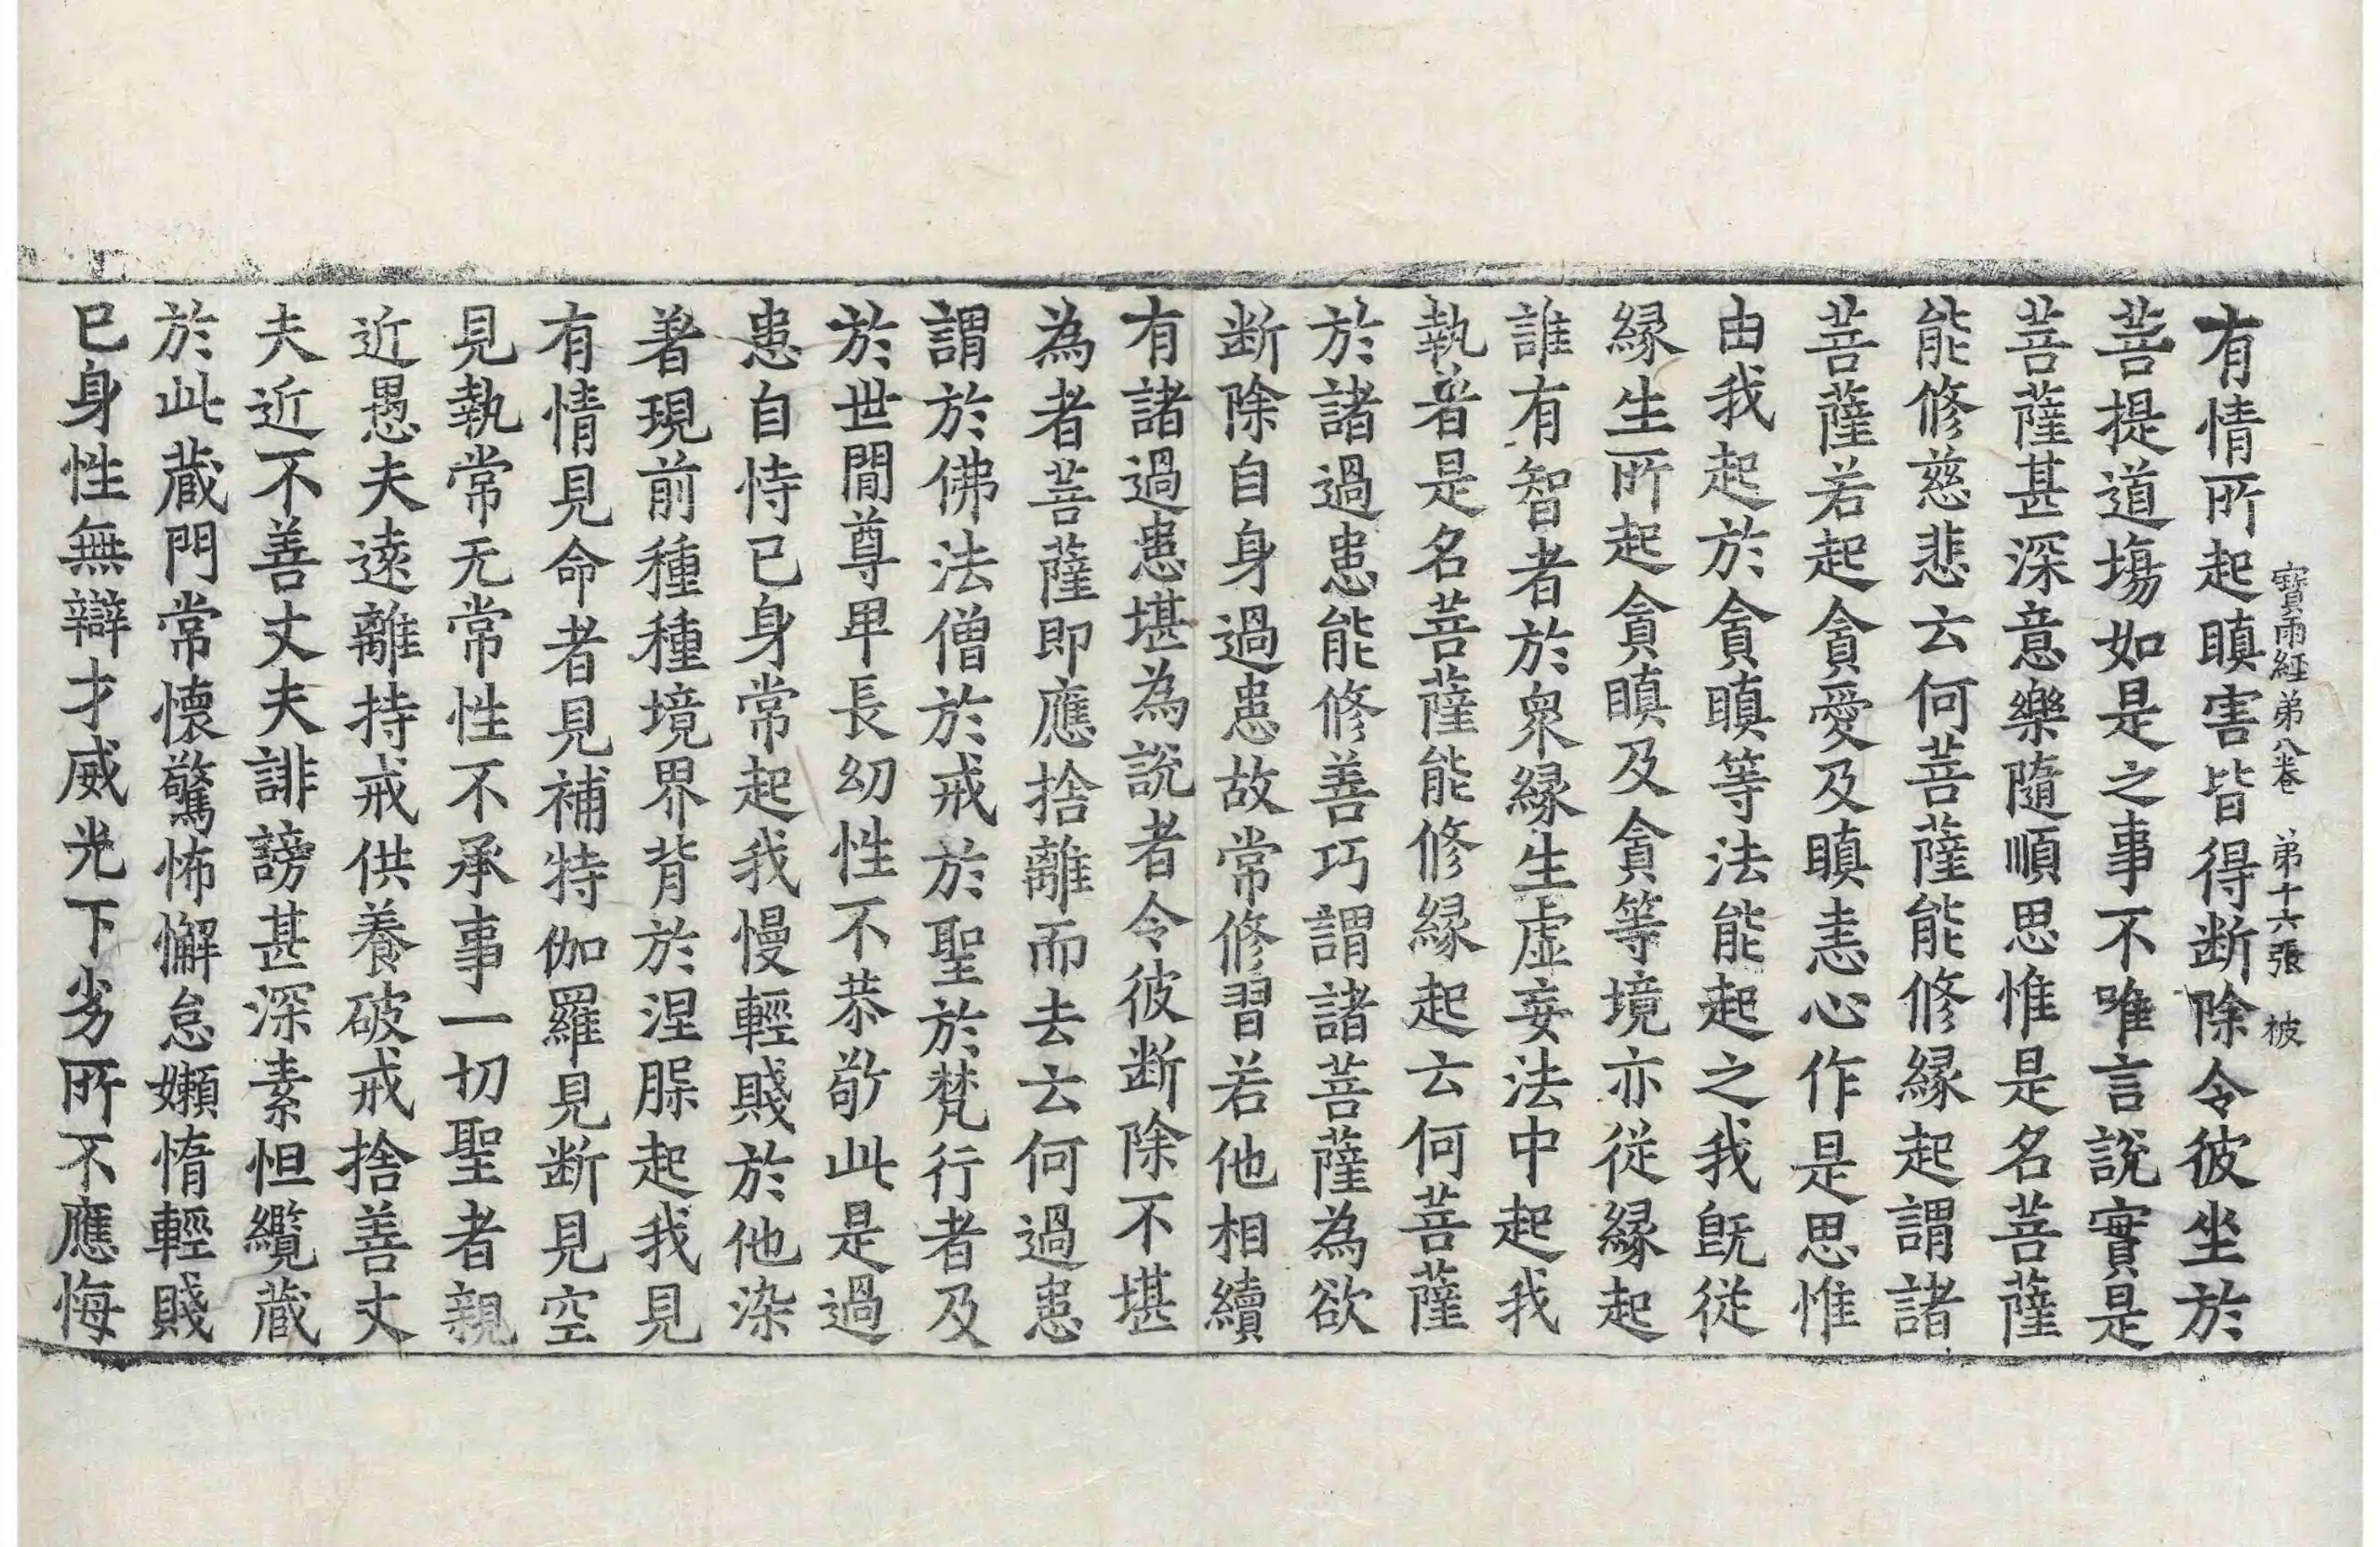 寶雨經弟八卷 弟十六張 被
有情所起瞋害皆得断除令彼坐於
菩提道塲如是之事不唯言說實是
菩薩甚深意樂隨順思惟是名菩薩
能修慈悲云何菩薩能修緣起謂諸
菩薩若起貪愛及瞋恚心作是思惟
由我起於貪瞋等法能起之我旣從
緣生所起貪瞋及貪等境亦從緣起
誰有智者於衆緣生虛妄法中起我
執著是名菩薩能修緣起云何菩薩
於諸過患能修善巧謂諸菩薩為欲
断除自身過患故常修習若他相續
有諸過患堪為說者令彼断除不堪
為者菩薩即應捨離而去云何過患
謂於佛法僧於戒於聖於梵行者及
於世間尊卑長幼性不恭敬此是過
患自恃已身常起我慢輕賤於他染
著現前種種境界背於涅脲起我見
有情見命者見補特伽羅見断見空
見執常无常性不承事一切聖者親
近愚夫遠離持戒供養破戒捨善丈
夫近不善丈夫誹謗甚深素怛纜蔵
於此蔵門常懷驚怖懈怠嬾惰輕賤
已身性無辯才威光下劣所不應悔